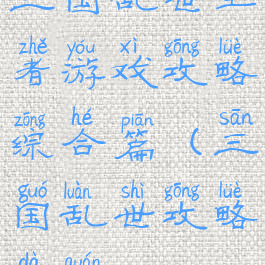 三国乱世王
zhě yóu xì gōng lüè
者游戏攻略
zōng hé piān sān
综合篇（三
guó luàn shì gōng lüè
国乱世攻略
dà quán